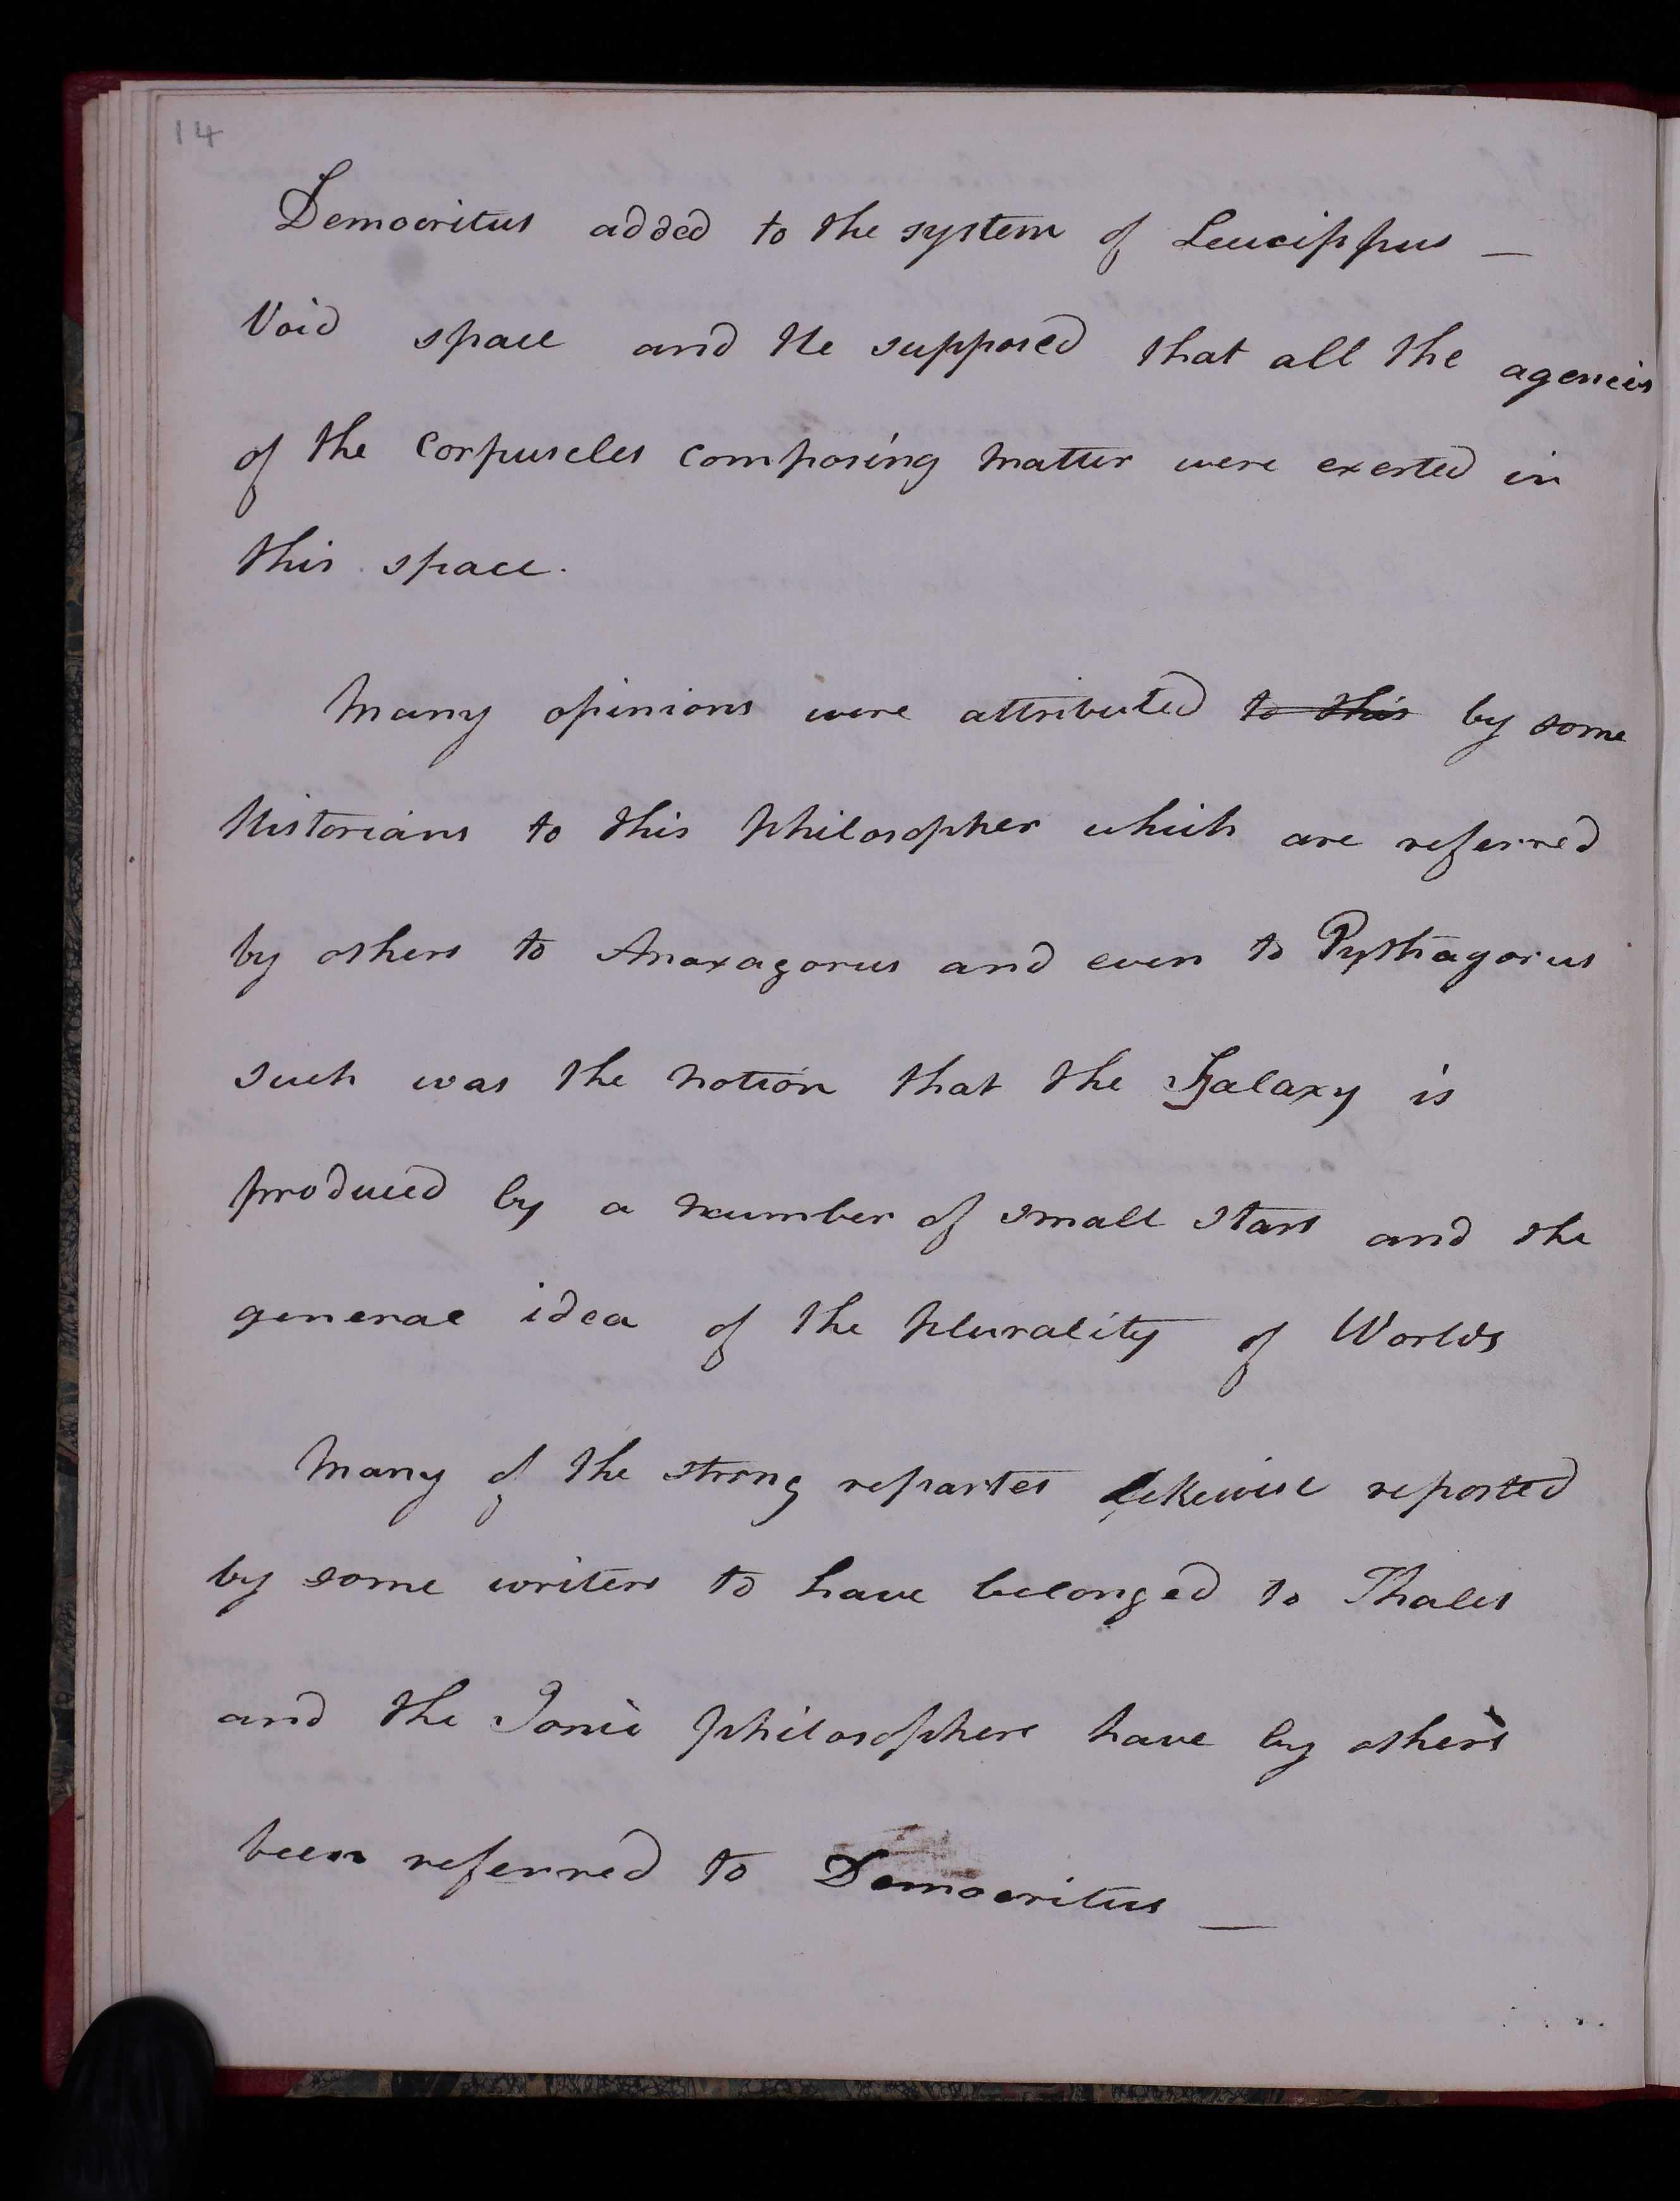 14
Democritus added to the system of Leucippus —
Void space and He supposed that all the agencies
of the Corpuscles composing matter were exerted in
this space.
Many opinions were attributed ~~to this~~ by some
Historians to this philosopher which are referred
by others to Anaxagorus and even to Pythagorus
such was the notion that the Galaxy is
produced by a number of small stars and the
general idea of the plurality of Worlds
Many of the strong repartes likewise reported
by some writers to have belonged to Thales
and the Ionic philosophers have by others
been referred to Democritus —